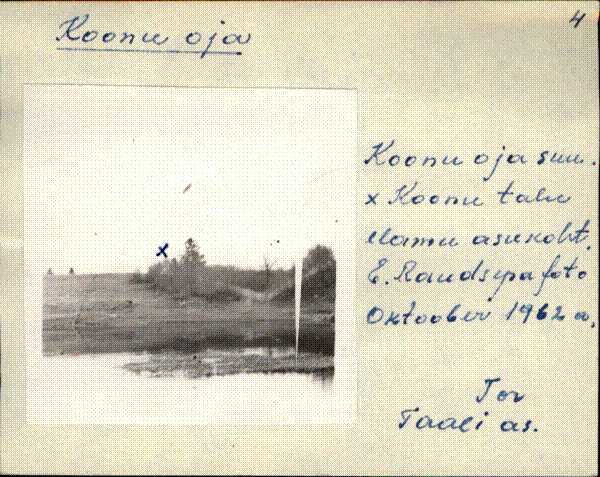 4
Koonu oja
x
Koonu oja suu.
x Koonu talu
elamu asukoht.
E. Raudsepa foto
Oktoober 1962 a.
Tor
Taali as.